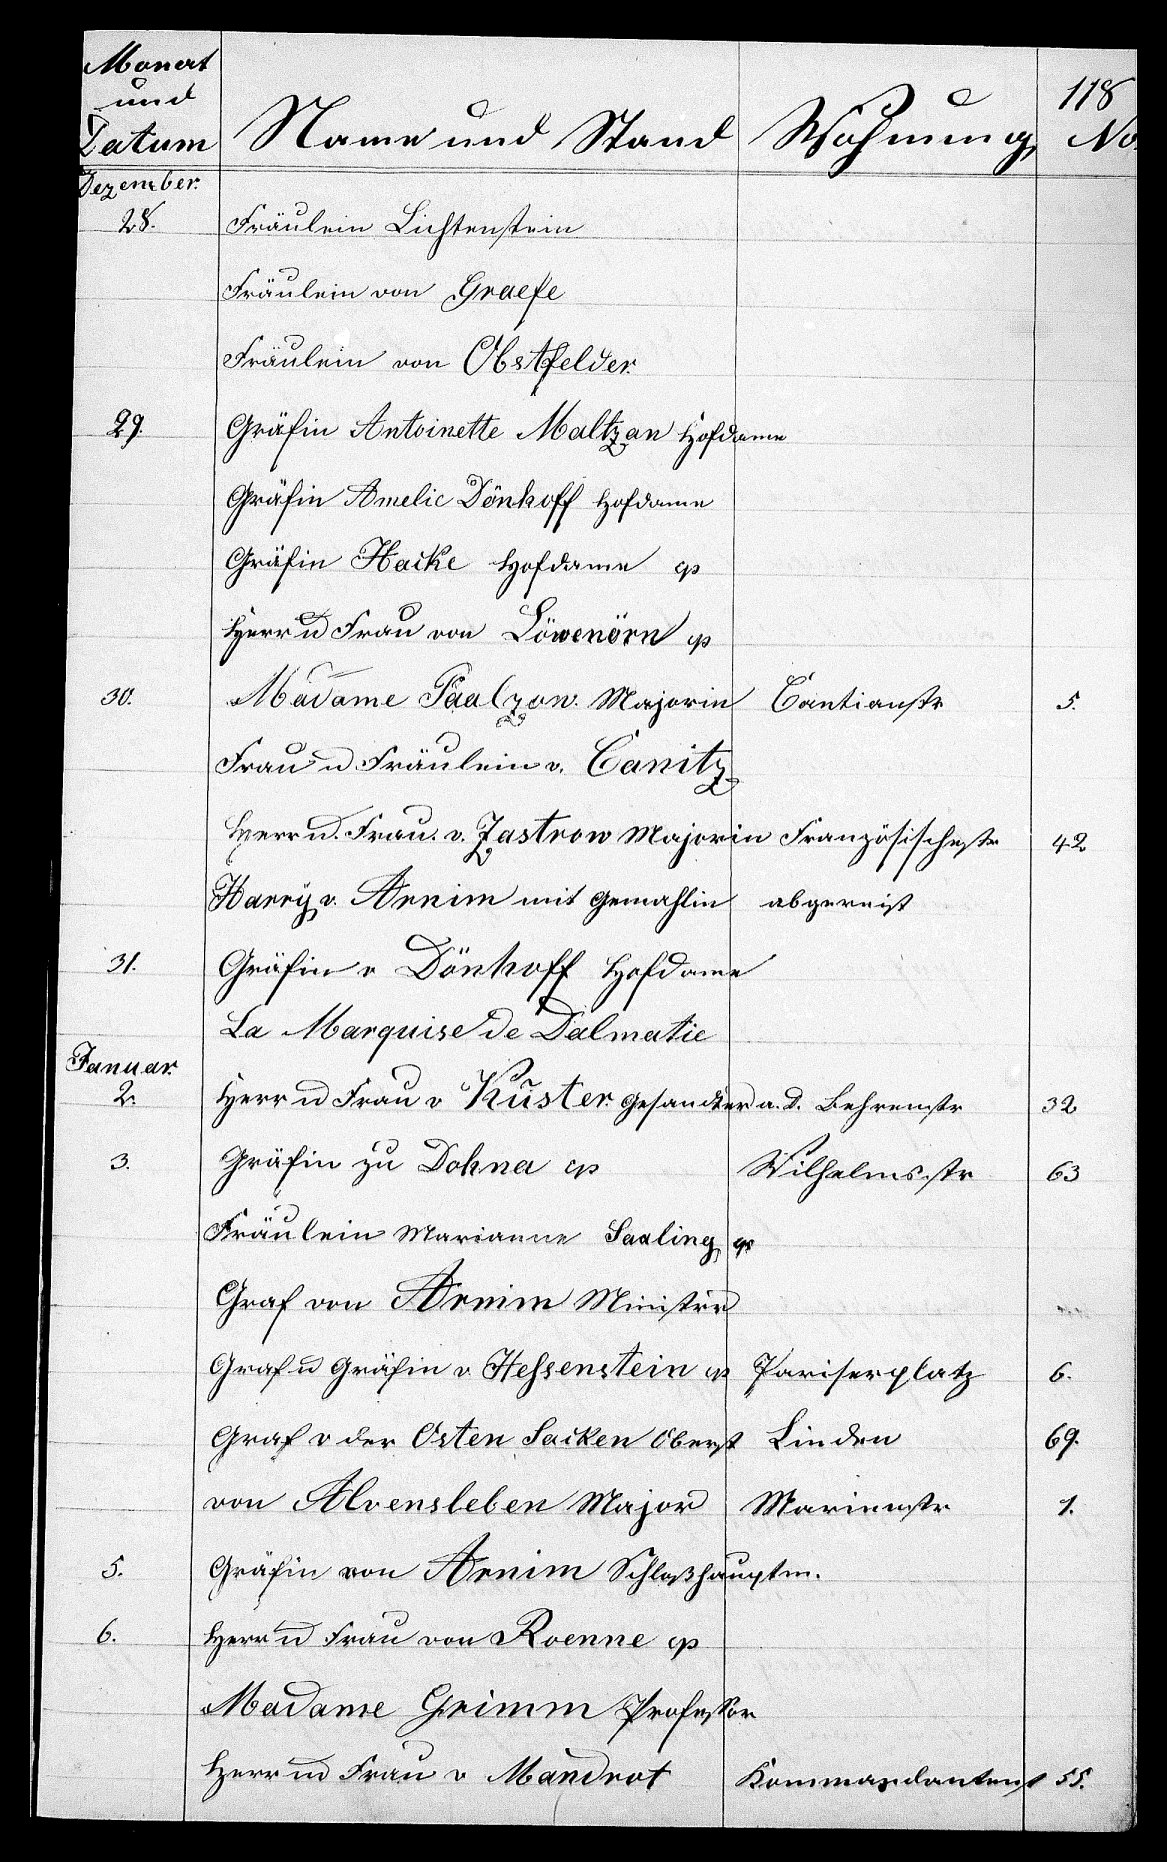 118
Monat und Datum Name und Stand Wohnung No.
Dezember.
28. Fräulein Lichtenstein
Fräulein von Graefe
Fräulein von Obstfelder.
29. Gräfin Antoinette Maltzan Hofdame
Gräfin Amelie Dönhoff Hofdame
Gräfin Hacke Hofdame cp
Herr u Frau von Löwenörn cp
30. Madame Paalzow. Majorin Cantianstr 5.
Frau u Fräulein v. Canitz
Herr u. Frau. v. Zastrow Majorin Französischestr 42
Harry v. Arnim mit Gemahlin abgereist
31. Gräfin v Dönhoff Hofdame
La Marquise de Dalmatie
Januar.
2. Herr u Frau v Küster. Gesandter a. D. Behrenstr 32
3. Gräfin zu Dohna cp Wilhelms.str 63
Fräulein Marianne Saaling cp
Graf von Arnim Minister
Graf u Gräfin v Hessenstein cp Pariserplatz 6.
Graf v der Osten Sacken Oberst Linden 69.
von Alvensleben Major Marienstr 1.
5. Gräfin von Arnim Schloßhauptm.
6. Herr u Frau von Roenne cp
Madame Grimm Professor
Herr u Frau v Mandrot Kommandantenst 55.